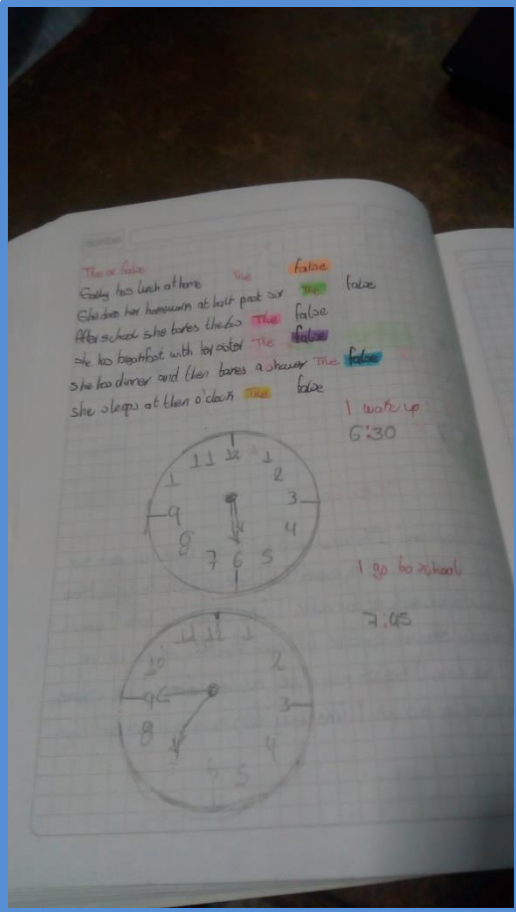 True or False
Sally has lunch at home True False
She does her homework at half past six True False
After school she takes the bus True False
she has breakfast with her sister True False
she has dinner and then takes a shower True False
she sleeps at then o'clock True False
I wake up
6:30
11 12 1
1 2
9 3
8 4
7 6 5
I go to school
7:45
11 12 1
10 2
9 3
8 4
5